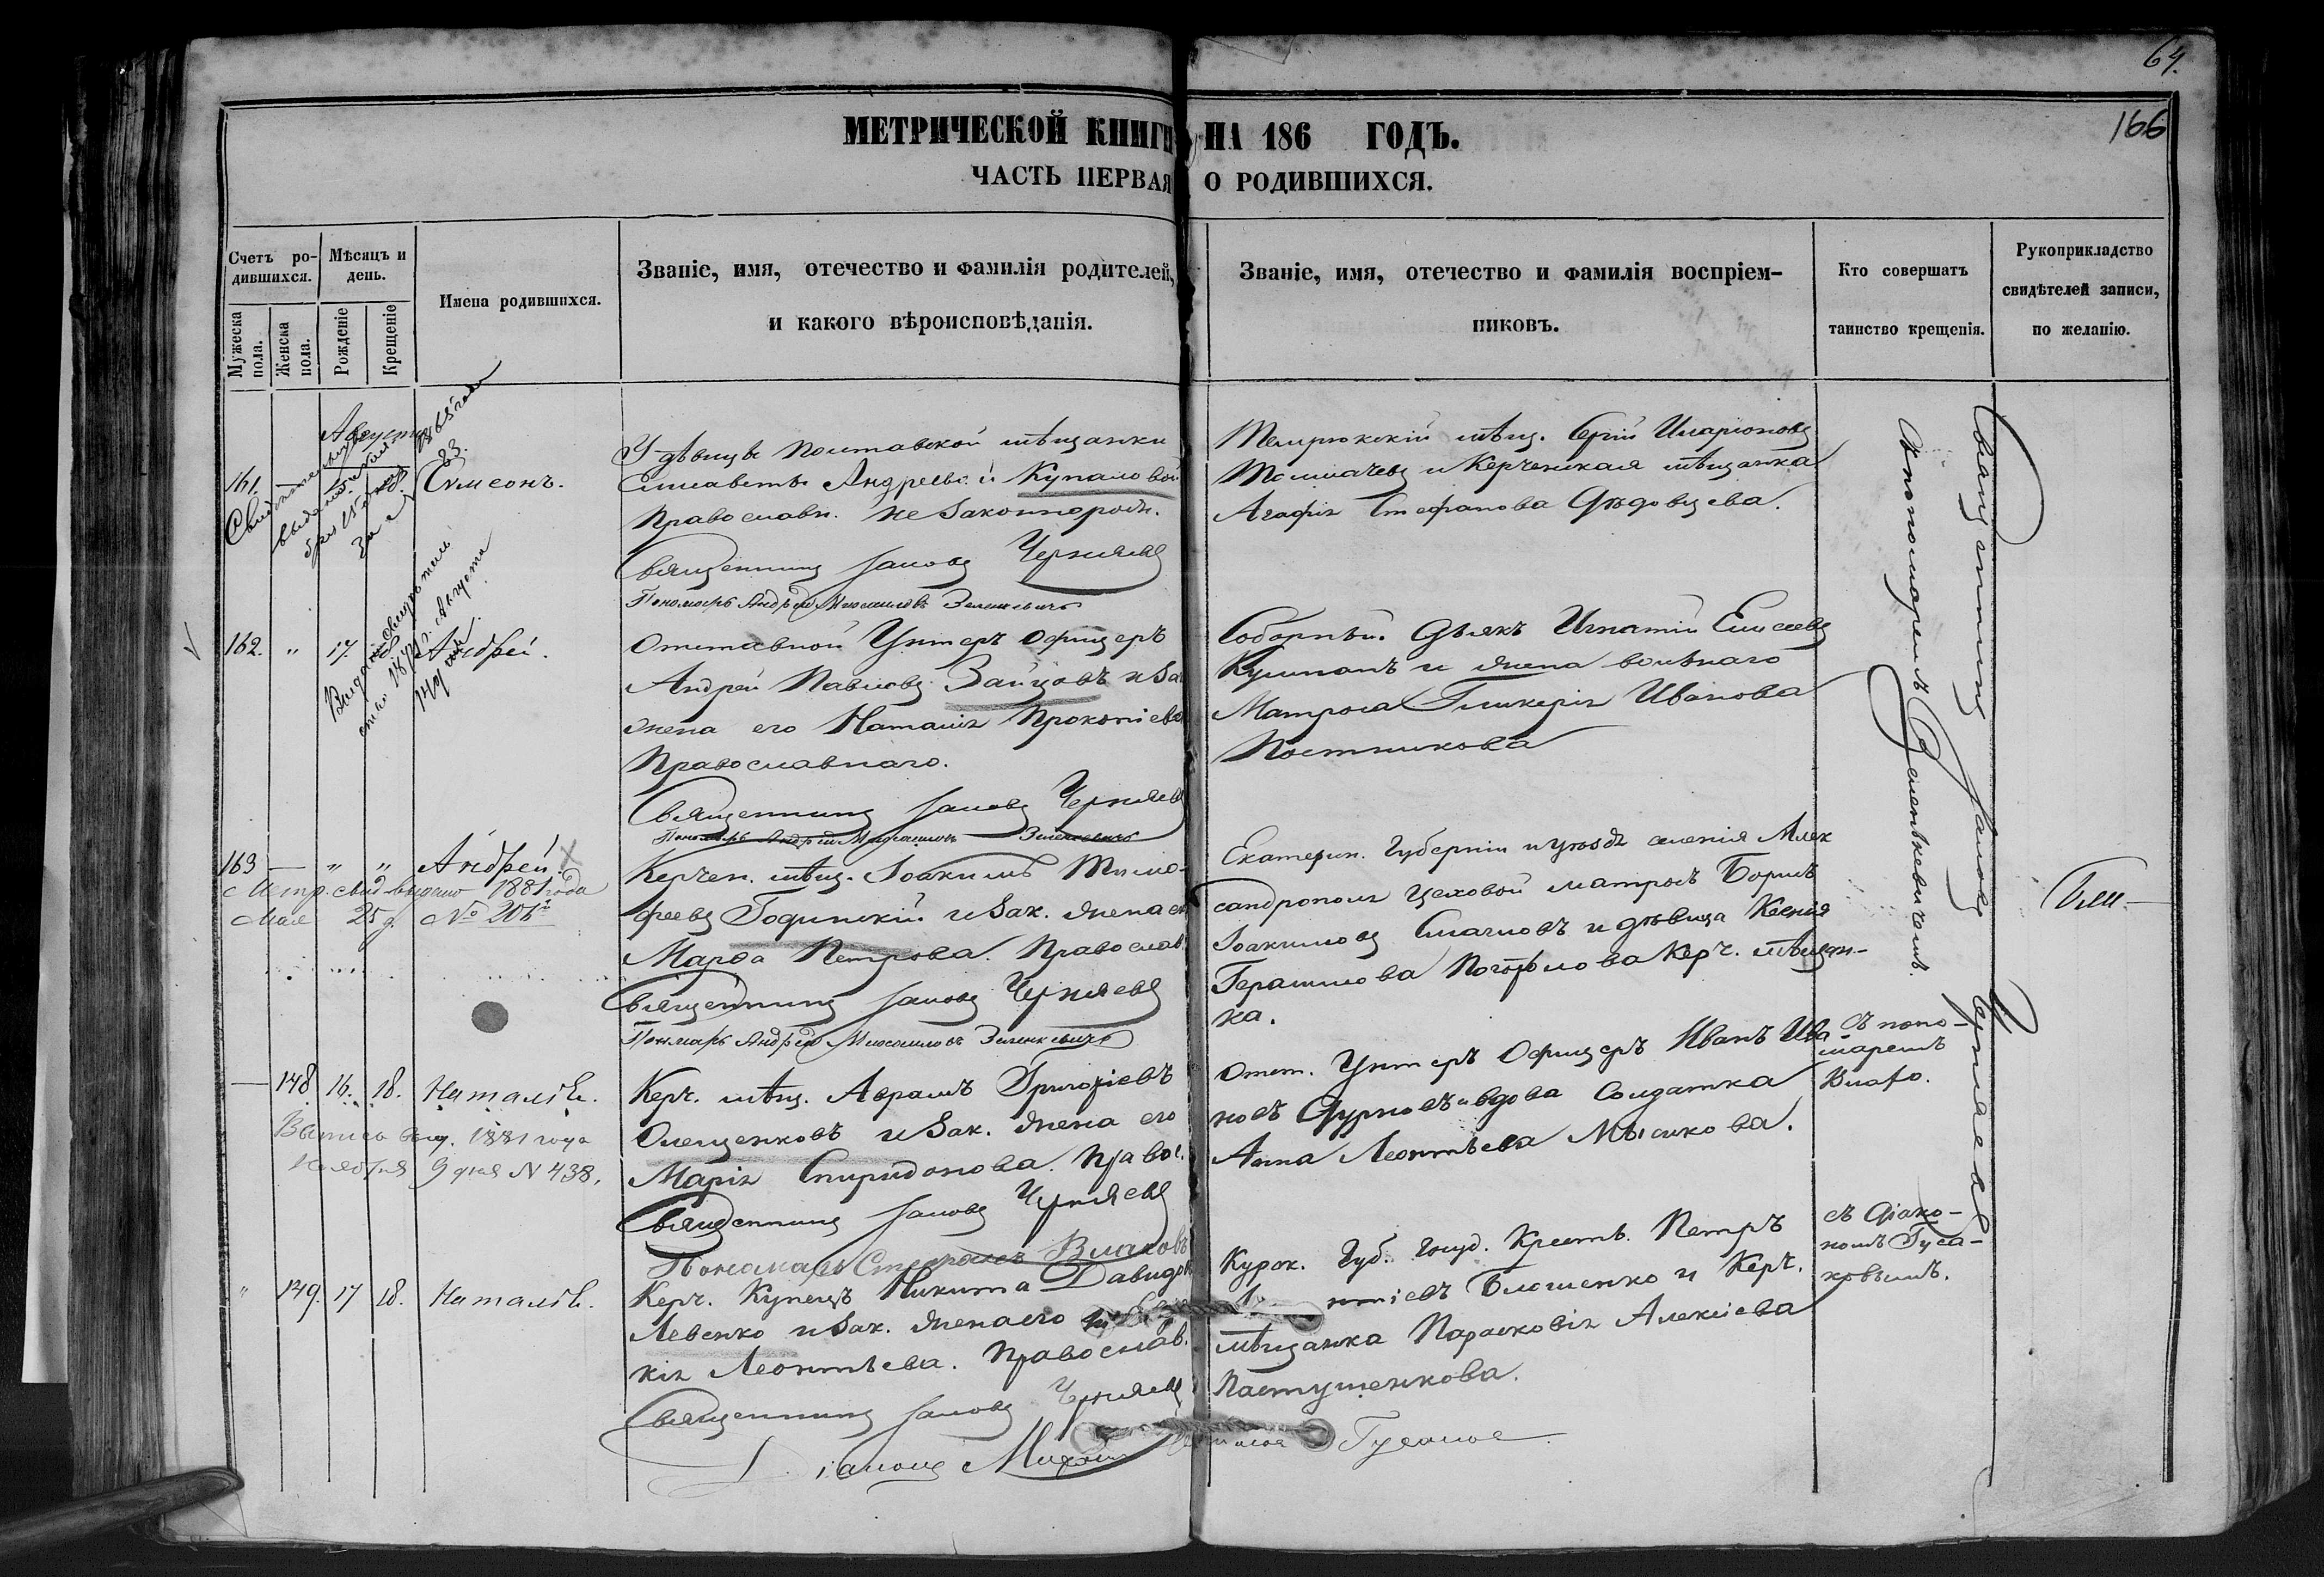 64.
166
МЕТРИЧЕСКОЙ КНИГИ НА 186 ГОДЪ.
ЧАСТЬ ПЕРВАЯ О РОДИВШИХСЯ.
Счетъ ро-
дившихся.
Мужеска пола.
Женска пола.
Мѣсяцъ и
день.
Рожденіе
Крещеніе
Имена родившихся.
Званіе, имя, отечество и фамилія родителей,
и какого вѣроисповѣданія.
Званіе, имя, отечество и фамилія воспріем-
никовъ.
Кто совершатъ
таинство крещенія.
Рукоприкладство
свидѣтелей записи,
по желанію.
Августа
161. Симеонъ.
У дѣвицы Полтавской мѣщанки
Елисаветы Андреевой Купаловой
Православн. незаконнорож.
Священникъ Іаковъ Черняевъ
Пономарь Андрей Зеленкевичъ
Темрюкскій мѣщ. Сергій Иларіоновъ
Толмачевъ и Керченская мѣщанка
Агафія Стефанова Дѣдовцева.
162. " 17. Андрей.
Отставной Унтеръ Офицеръ
Андрей Павловъ Зайцовъ и За
жена его Наталія Прокопіева
Православнаго.
Священникъ Іаковъ Черняевъ
Пономарь Андрей Зеленкевичъ
Соборный Дьякъ Игнатій Елисеевъ
Кулпанъ и жена вольнаго
Матроса Гликерія Иванова
Постникова
163 — " " Андрей. X
Метр. свид. выдано 1881 года
Мая 25 д. № 206
Керчен. мѣщ. Іоакимъ Тимо-
феевъ Годинскій и Зак. жена ег
Марѳа Петрова. Православ.
Священникъ Іаковъ Черняевъ
Пономарь Андрей Зеленкевичъ
Екатерин. Губерніи и уѣзда селенія Алек
сандрополя цеховой матросъ Борисъ
Іоакимовъ и дѣвица Ксенія
Герасимова Керч. мѣщан-
ка.
— 148 16. 18. Наталія.
Выпись выд. 1881 года
Ноября 9 дня N 438.
Керч. мѣщ. Авраамъ Григоріевъ
Олещенковъ и Зак. жена его
Марія Спиридонова. Правос.
Священникъ Іаковъ Черняевъ
Пономарь Стефанъ Влаховъ
Отст. Унтеръ Офицеръ Иванъ Ива
новъ Дурновъ и вдова Солдатка
Анна Леонтьева Мысикова.
съ поно-
маремъ
Влахо.
" 149. 17 18. Наталія.
Керч. Купецъ Никита Давидов
Левенко и Зак. жена его
кія Леонтьева. Православ.
Священникъ Іаковъ Черняевъ
Діаконъ Гусаков
Курск. Губ. Госуд. Крестьян. Петръ
Блошенко и Керч.
мѣщанка Параскевія Алексіева
Пастушенкова.
съ Діако-
номъ Гуса-
ковымъ.
Священникъ Іаковъ Черняевъ
съ пономаремъ Зеленкевичемъ.